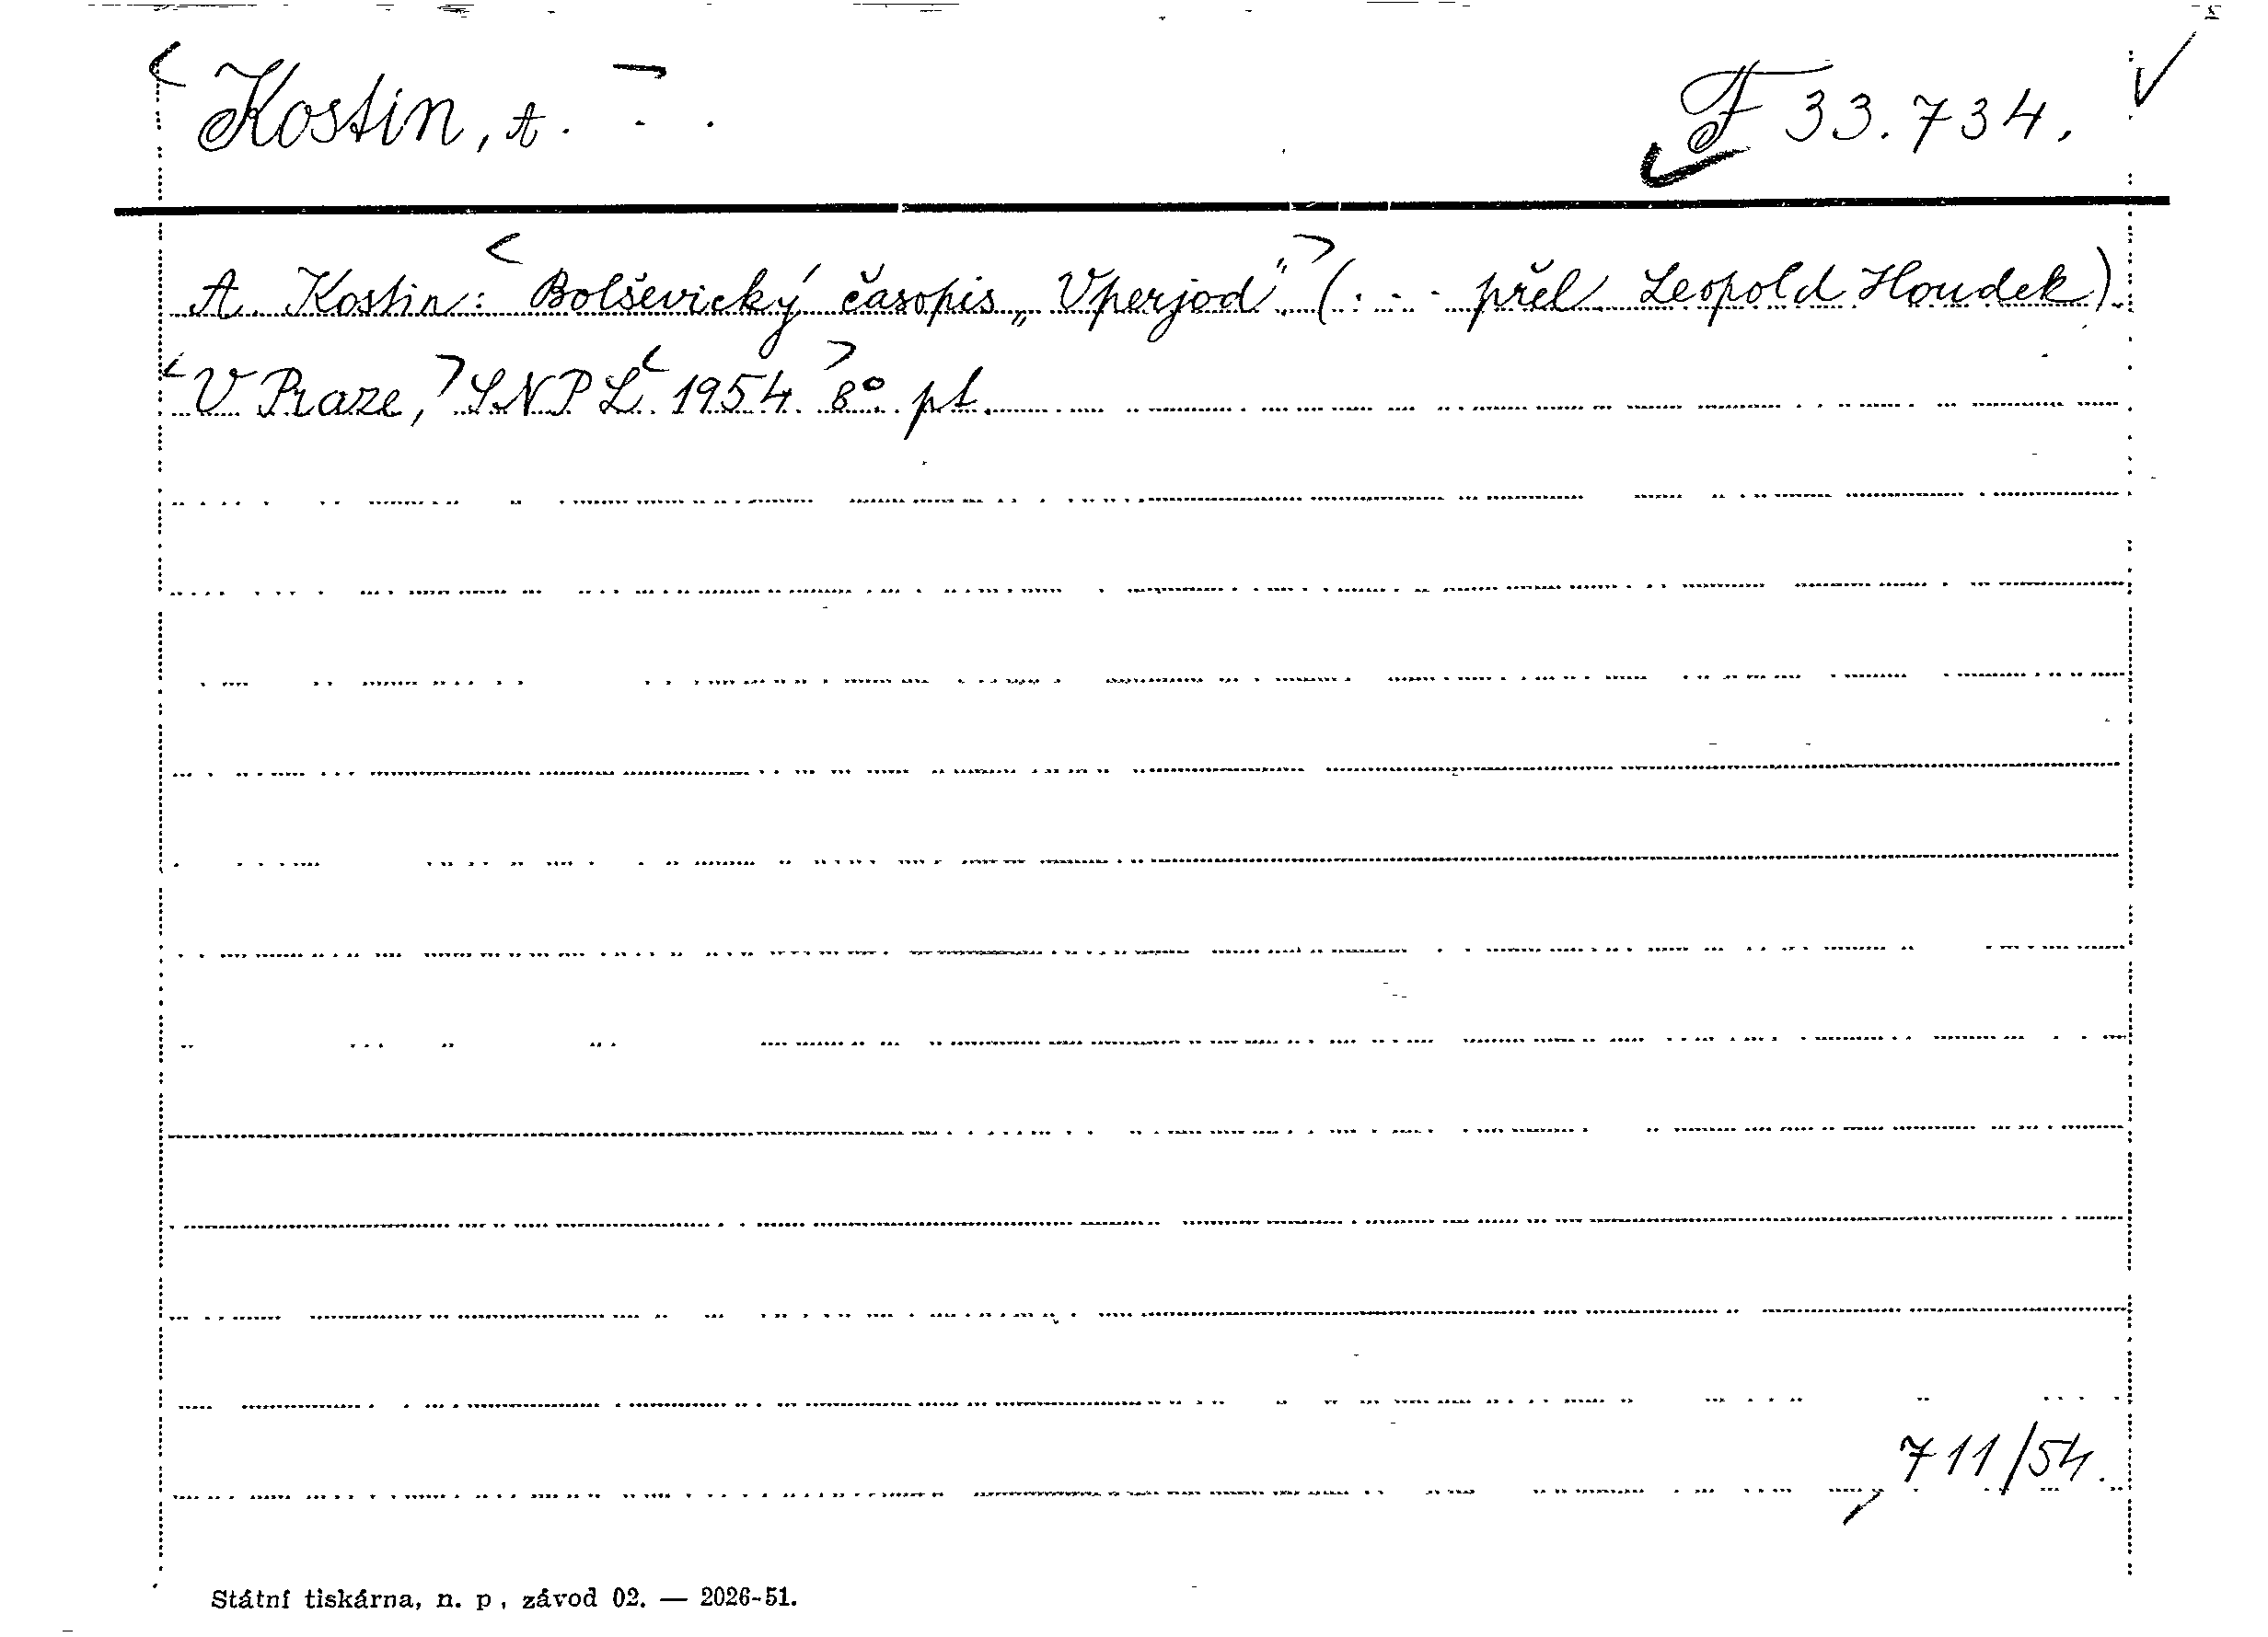 Kostin, A. - . F 33.734.
A. Kostin: Bolševický časopis „Vperjod" (. - - přel. Leopold Houdek)
V Praze, SNPL 1954. 8° pt.
711/54.
Státní tiskárna, n. p., závod 02. — 2026-51.